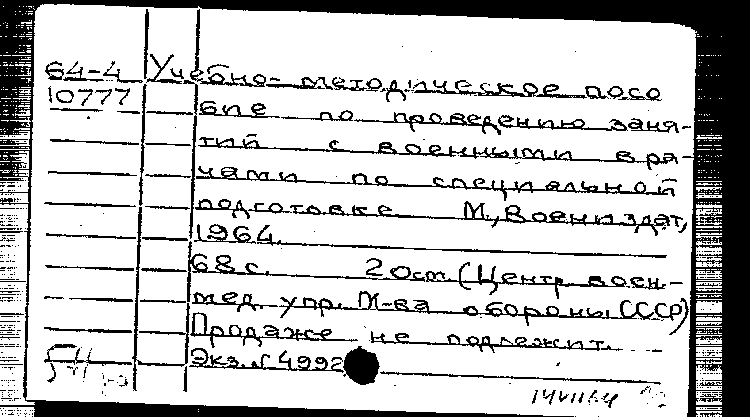 64-4 Учебно-методическое посо
10777 бие по проведению заня-
тий с военными вра-
чами по специальной
подготовке М., Воениздат,
1964.
68 с. 20 см (Центр. воен.-
мед. упр. М-ва обороны СССР)
Продаже не подлежит.
Экз. № 4992